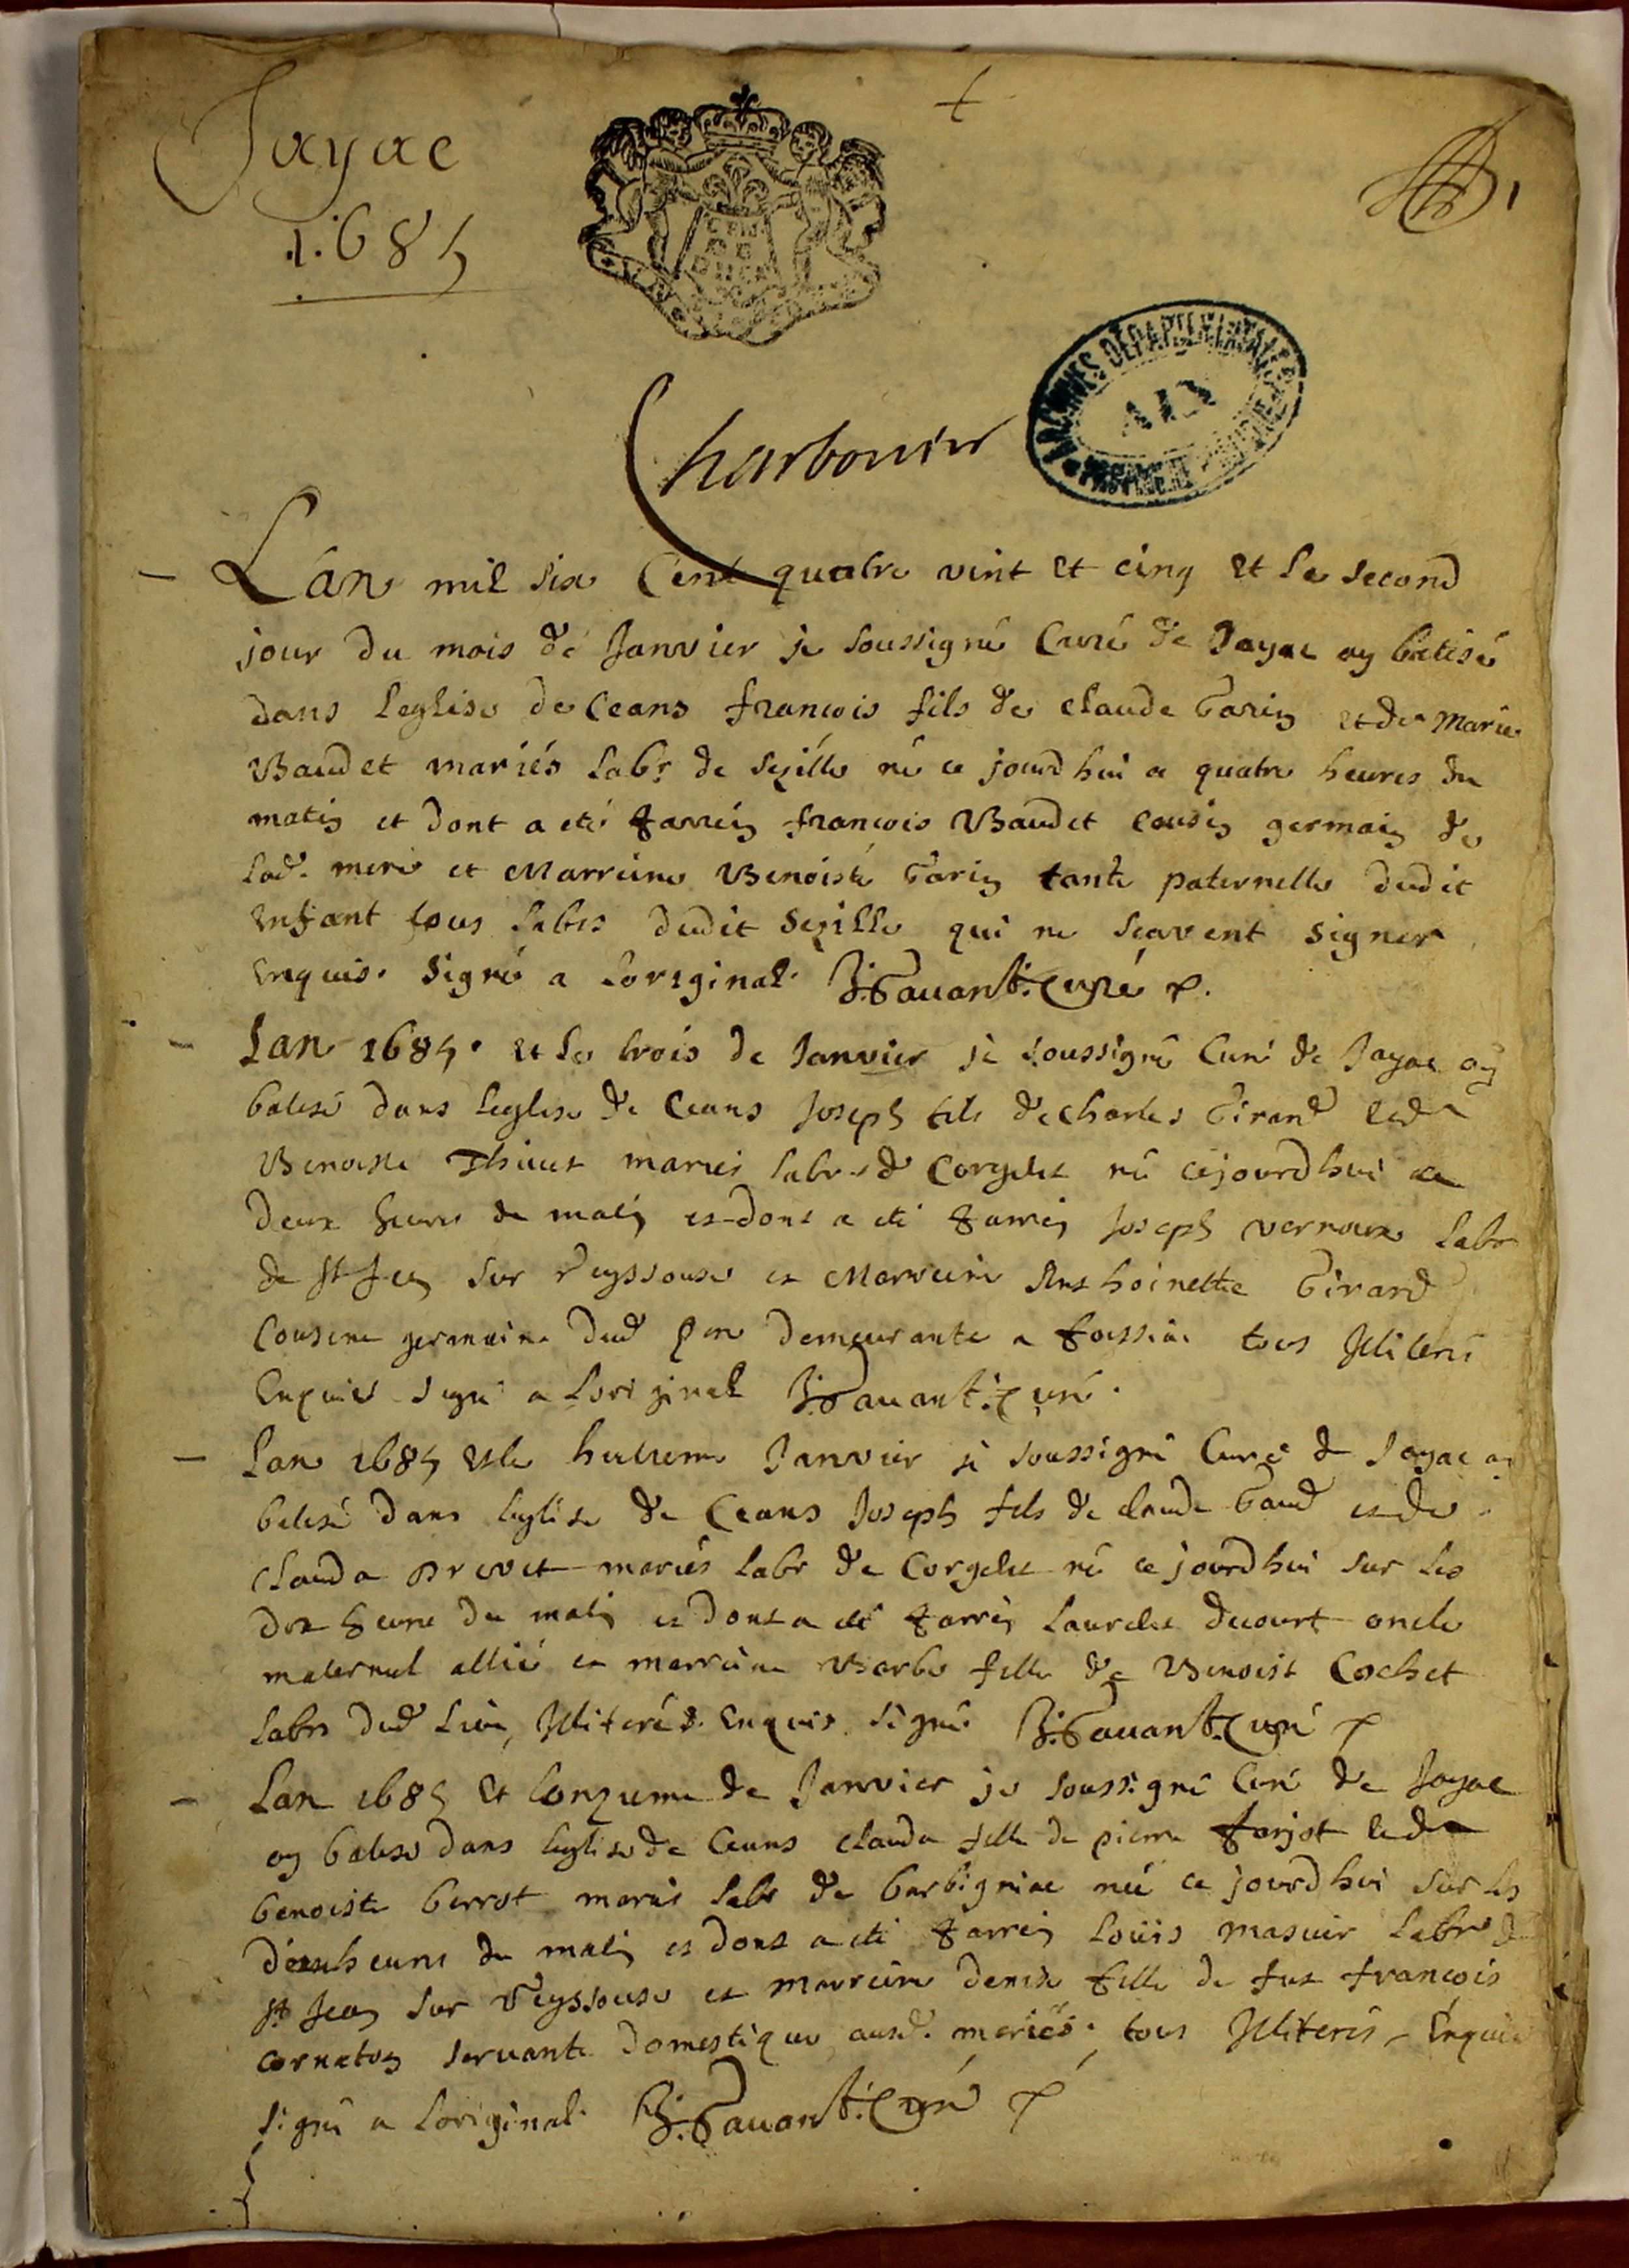 Jayac
1685
1
Charbonier
ARCHIVES DÉPARTEMENTALES
AIN
L'an mil six Cent quatre vint et cinq et le second
jour du mois de Janvier je soussigné Curé de Jayac ay batisé
dans leglise de Ceans francois fils de claude Parin et de Marie
Baudet mariés labr. de Sezille né ce jourdhui a quatre heures du
matin et dont a eté parrein francois Baudet cousin germain de
lad. mere et Marreine Benoiste Parin tante paternelle dudit
enfant tous labrs dudit Sezille qui ne scavent signer
enquis. Signé a loriginal. Pavant. Curé
Lan 1685. et le trois de Janvier je soussigné Curé de Jayac ay
batisé dans leglise de Ceans Joseph fils de charles Tirand et de
Benoiste mariés labrs de Corgelet né cejourdhui a
deux heures du matin et dont a eté parrein Joseph vernoux labr
de St Jean sur Reyssouse et Marreine Anthoinette Tirard
Cousine germaine dud pere demeurante a foissiac tous Illiterés
Enquis signé a loriginal Pavant. Curé.
Lan 1685 et le huitieme Janvier je soussigné Curé de Jayac ay
batisé dans leglise de Ceans Joseph fils de claude et de
Clauda Brevet mariés labr de Corgelet né ce jourdhui sur les
dix heures du matin et dont a eté parrein Laurelet decourt oncle
maternel allié et marreine Barbe fille de Benoist Cochet
labrs dud lieu, Illiterés. Enquis signé Pavant. Curé
Lan 1685 et lonzieme de Janvier je soussigné Curé de Jayac
ay batisé dans leglise de Ceans clauda fille de pierre farjot et de
benoiste berrot mariés labr de barbigniac née ce jourdhui sur les
deux heures du matin et dont a eté parrein Loüis masuir labr de
St Jean sur Reyssouse et marreine denise fille de fut francois
corneton servante domestique ausd. mariés. tous Illiterés Enquis
signé a loriginal. Pavant. Curé